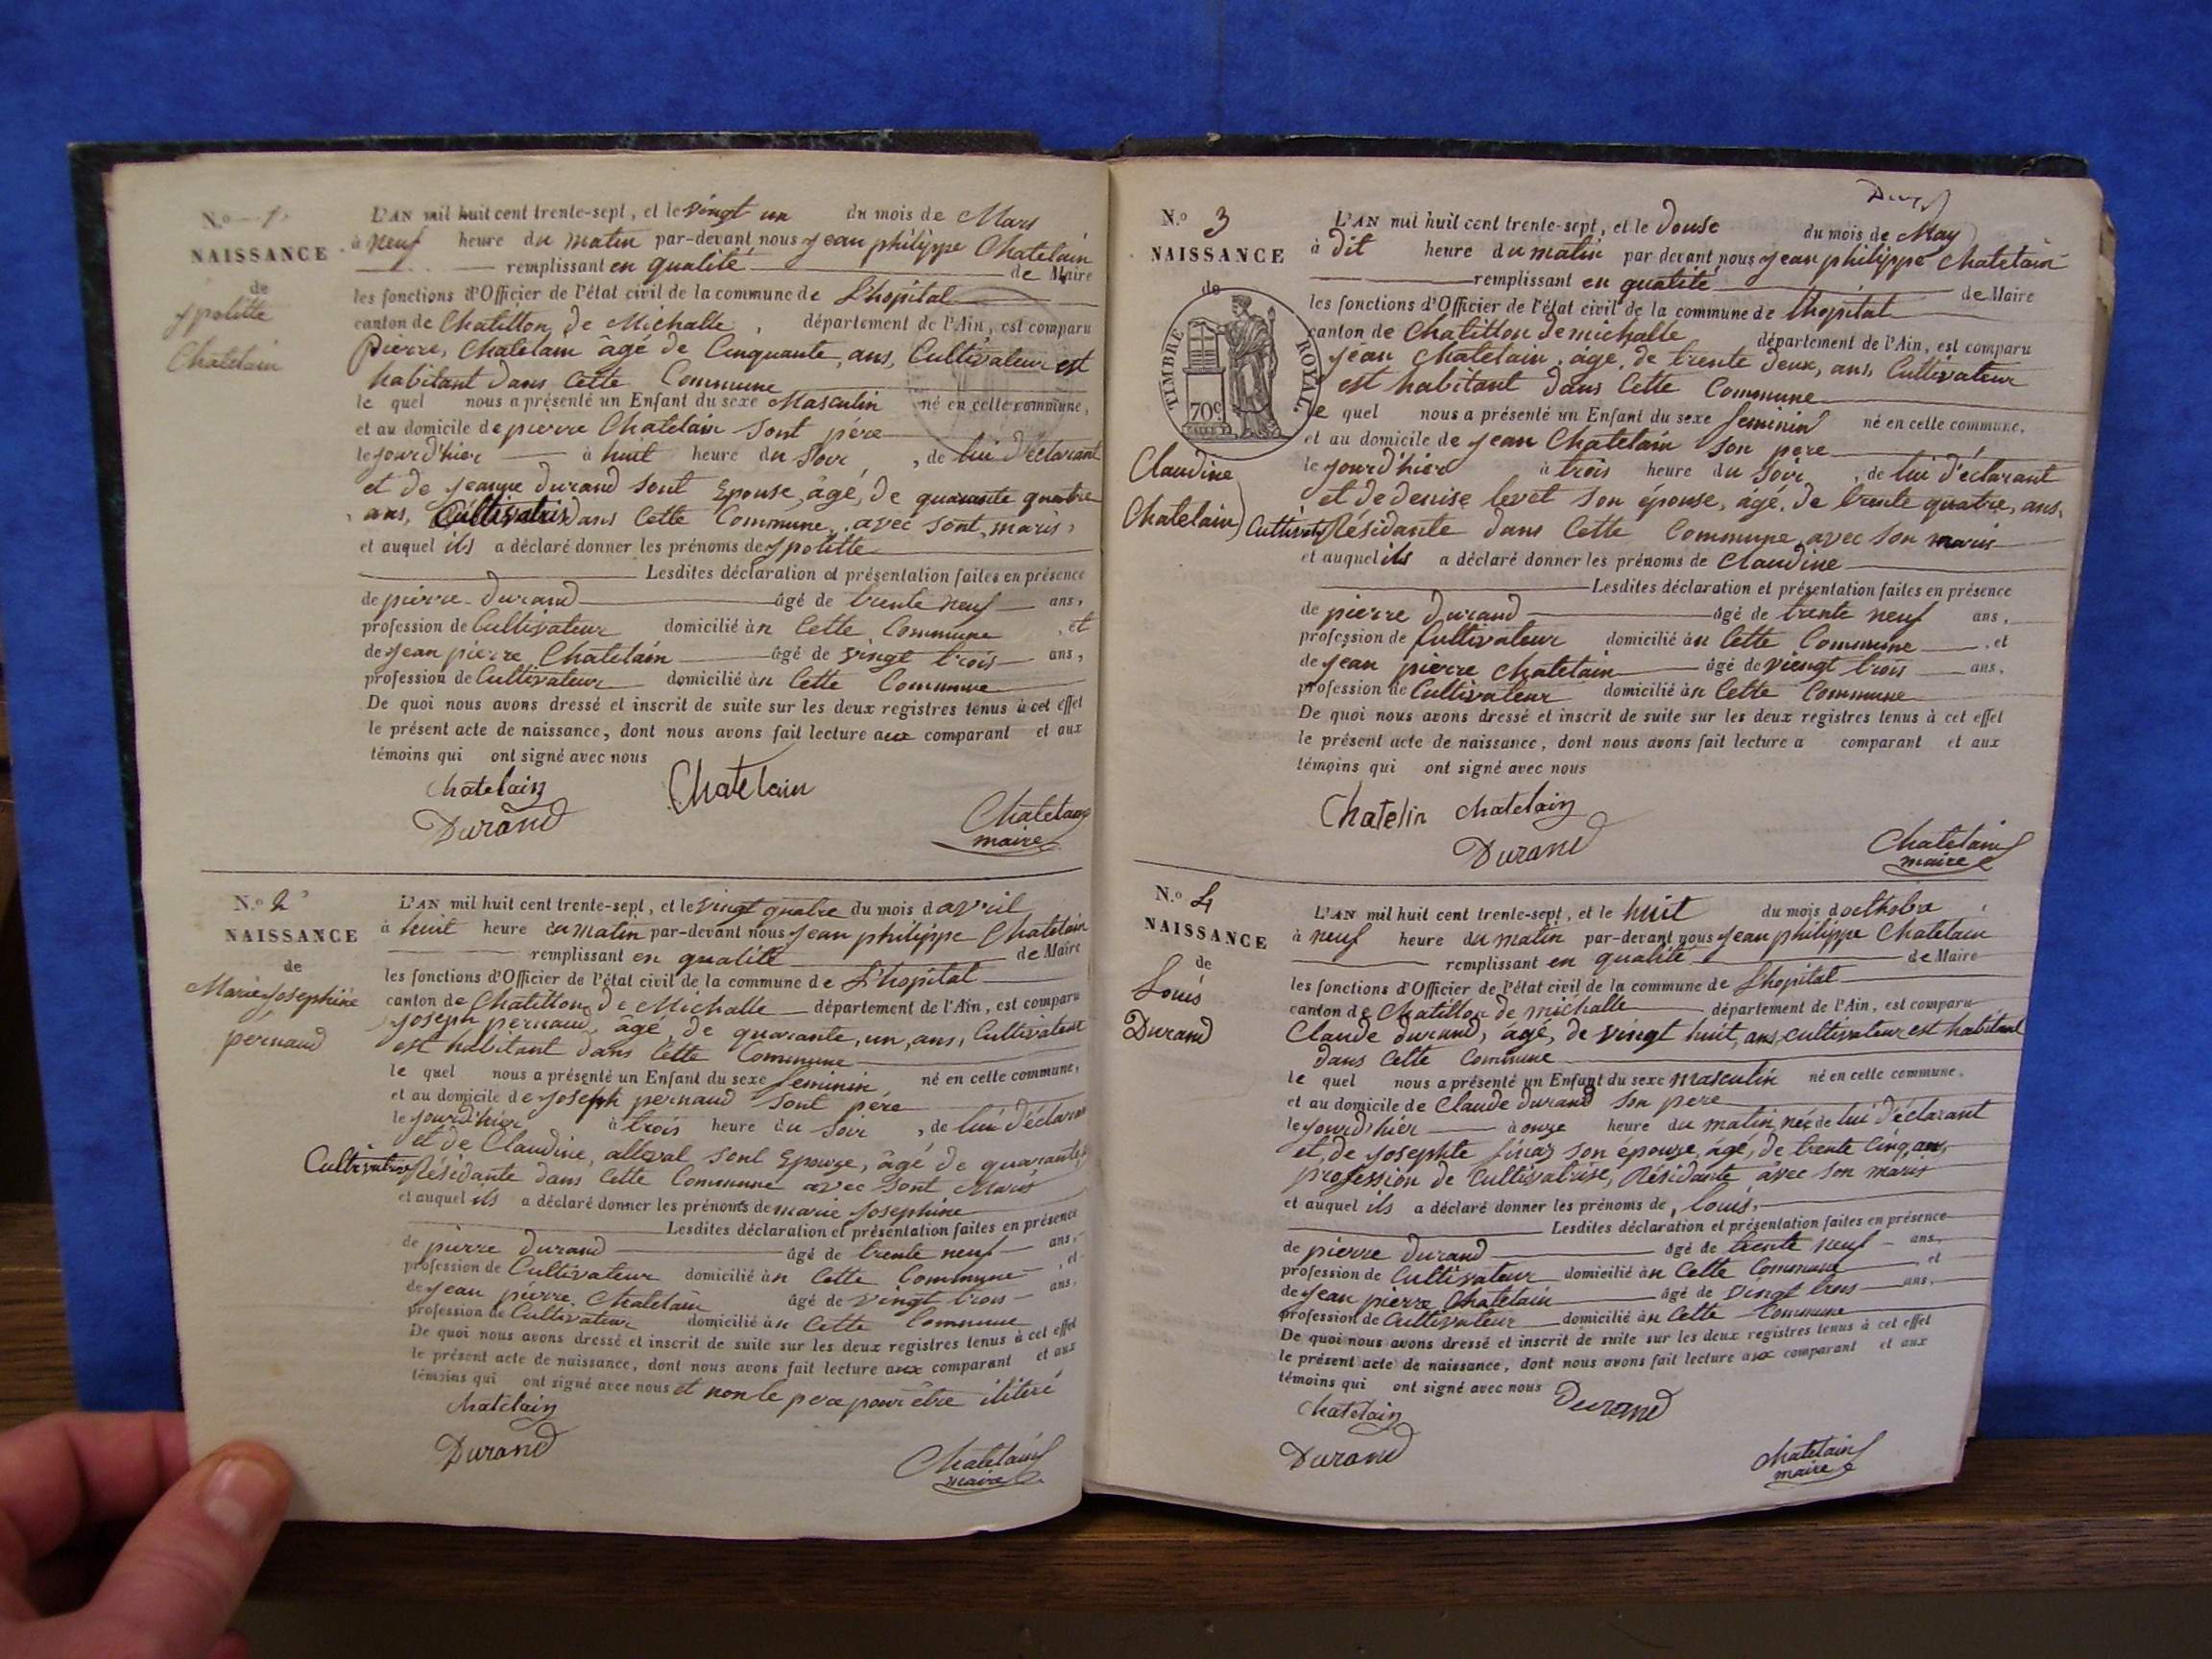 N.o 1.
NAISSANCE
de
ypolitte
Chatelain
L'AN mil huit cent trente-sept, et le vingt un du mois de Mars
à neuf heure du matin par-devant nous jean philippe Chatelain
remplissant en qualité de Maire
les fonctions d'Officier de l'état civil de la commune de L'hopital
canton de Chatillon de Michalle, département de l'Ain, est comparu
Pierre, Chatelain âgé de Cinquante, ans, Cultivateur est
habitant dans Cette Commune
le quel nous a présenté un Enfant du sexe Masculin né en celle commune,
et au domicile de pierre Chatelain sont pére
le jourd'hier à huit heure du Soir, de lui déclarant
et de jeanne durand sont Epouse, âgé, de quarante quatre
ans, Cultivatris dans Cette Commune, avec sont, maris,
et auquel ils a déclaré donner les prénoms de ypolitte
Lesdites déclaration et présentation failes en présence
de pierre durand âgé de trente neuf ans,
profession de Cultivateur domicilié àn Cette Commune, et
de jean pierre Chatelain âgé de vingt trois ans,
profession de Cultivateur domicilié àn Cette Commune
De quoi nous avons dressé et inscrit de suite sur les deux registres tenus à cet effet
le présent acte de naissance, dont nous avons fait lecture aux comparant et aux
témoins qui ont signé avec nous
chatelain Chatelain
Durand
Chatelain
maire
N.o 2
NAISSANCE
de
Marie josephine
pernaud
L'AN mil huit cent trente-sept, et le vingt quatre du mois d avril
à huit heure du matin par-devant nous jean philippe Chatelain
remplissant en qualité de Maire
les fonctions d'Officier de l'état civil de la commune de L'hopital
canton de Chatillon de Michalle département de l'Ain, est comparu
joseph pernaud, âgé de quarante, un, ans, Cultivateur
est habitant dans Cette Commune
le quel nous a présenté un Enfant du sexe feminin né en celle commune,
et au domicile de joseph pernaud sont pére
le jourd'hier à trois heure du Soir, de lui déclarant
et de Claudine, alleval sont Epouze, âgé de quarante
Cultivatrise Résidante dans Cette Commune avec sont Maris
et auquel ils a déclaré donner les prénoms de marie josephine
Lesdites déclaration et présentation faites en présence
de pierre durand âgé de trente neuf ans,
profession de Cultivateur domicilié àn Cette Commune, et
de jean pierre Chatelain âgé de vingt trois ans,
profession de Cultivateur domicilié àn Cette Commune
De quoi nous avons dressé et inscrit de suite sur les deux registres tenus à cet effet
le présent acte de naissance, dont nous avons fait lecture aux comparant et aux
témoins qui ont signé avec nous et non le pere pour être ilitéré
chatelain
Durand
Chatelain
maire
N.o 3
NAISSANCE
de
TIMBRE ROYAL.
70c
Claudine
Chatelain
L'AN mil huit cent trente-sept, et le douse du mois de May
à dit heure du matin par devant nous jean philippe Chatelain
remplissant en qualité de Maire
les fonctions d'Officier de l'état civil de la commune de lhopital
canton de Chatillon de michalle département de l'Ain, est comparu
jean Chatelain, âgé, de trente deux, ans, Cultivateur
est habitant dans Cette Commune
le quel nous a présenté un Enfant du sexe feminin né en celle commune,
et au domicile de jean Chatelain son pere
le jourd'hier à trois heure du Soir, de lui déclarant
et de denise levet son épouse, âgé, de trente quatre, ans,
Cultivatr Résidante dans Cette Commune, avec son maris
et auquel ils a déclaré donner les prénoms de Claudine
Lesdites déclaration et présentation failes en présence
de pierre durand âgé de trente neuf ans,
profession de Cultivateur domicilié àn Cette Commune, et
de jean pierre Chatelain âgé de viengt trois ans,
profession de Cultivateur domicilié àn Cette Commune
De quoi nous avons dressé et inscrit de suite sur les deux registres tenus à cet effet
le présent acte de naissance, dont nous avons fait lecture a comparant et aux
témoins qui ont signé avec nous
Chatelin chatelain
Durand
Chatelain
maire
N.o 4
NAISSANCE
de
Louis
Durand
L'AN mil huit cent trente-sept, et le huit du mois d octhobre
à neuf heure du matin par-devant nous jean philippe Chatelain
remplissant en qualité de Maire
les fonctions d'Officier de l'état civil de la commune de Lhopital
canton de Chatillon de michalle département de l'Ain, est comparu
Claude durand, âgé, de vingt huit, ans, cultivateur est habitant
dans Cette Commune
le quel nous a présenté un Enfant du sexe masculin né en celle commune,
et au domicile de Claude durand son pere
le jourd'hier à onze heure du matin, née de lui déclarant
et, de josephte son épouze, âgé, de trente Cinq, ans,
profession de Cultivatrise, Résidante avec son maris
et auquel ils a déclaré donner les prénoms de, louis,
Lesdites déclaration et présentation faites en présence
de pierre durand âgé de trente neuf ans,
profession de Cultivateur domicilié àn Cette Commune, et
de jean pierre Chatelain âgé de vingt trois ans,
profession de Cultivateur domicilié àn Cette Commune
De quoi nous avons dressé et inscrit de suite sur les deux registres tenus à cet effet
le présent acte de naissance, dont nous avons fait lecture aux comparant et aux
témoins qui ont signé avec nous Durand
chatelain
Durand
chatelain
maire